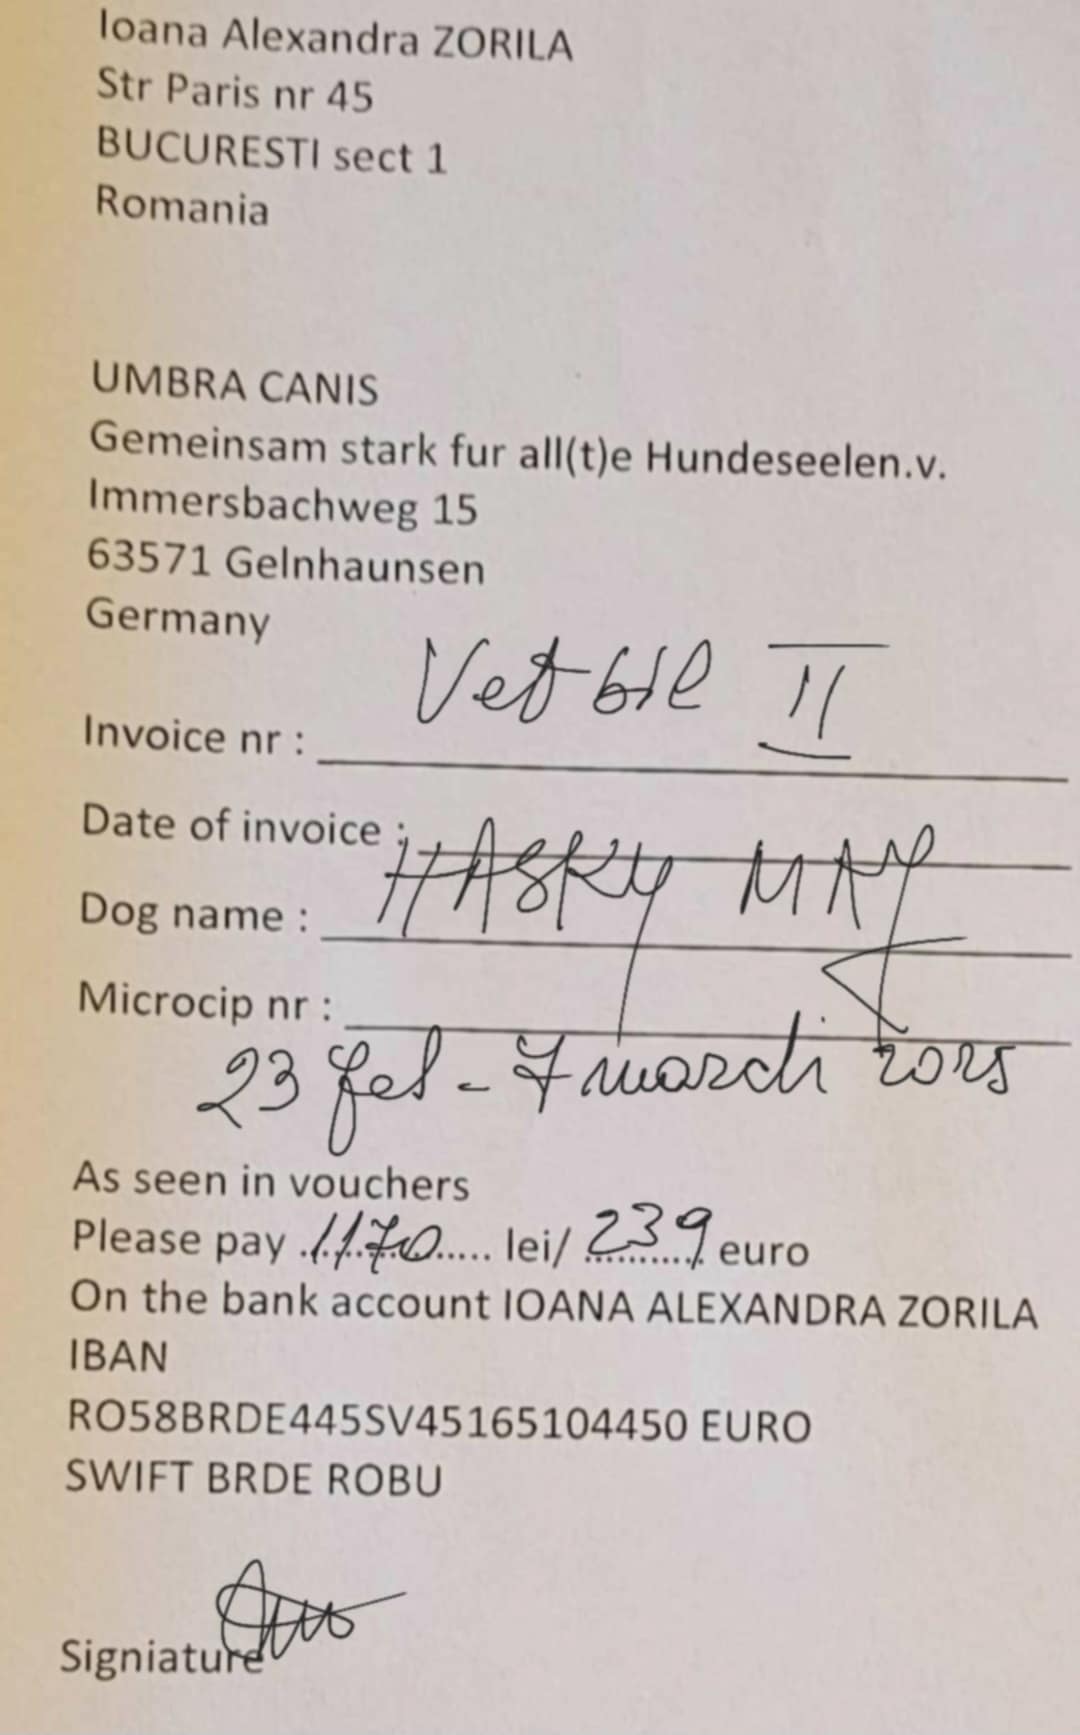 Ioana Alexandra ZORILA
Str Paris nr 45
BUCURESTI sect 1
Romania
UMBRA CANIS
Gemeinsam stark fur all(t)e Hundeseelen.v.
Immersbachweg 15
63571 Gelnhaunsen
Germany
Vet bil II
Invoice nr :
Date of invoice :
HASKY MAY
Dog name :
Microcip nr :
23 feb - 7 march 2025
As seen in vouchers
Please pay .1170..... lei/ 239 euro
On the bank account IOANA ALEXANDRA ZORILA
IBAN
RO58BRDE445SV45165104450 EURO
SWIFT BRDE ROBU
Signiature